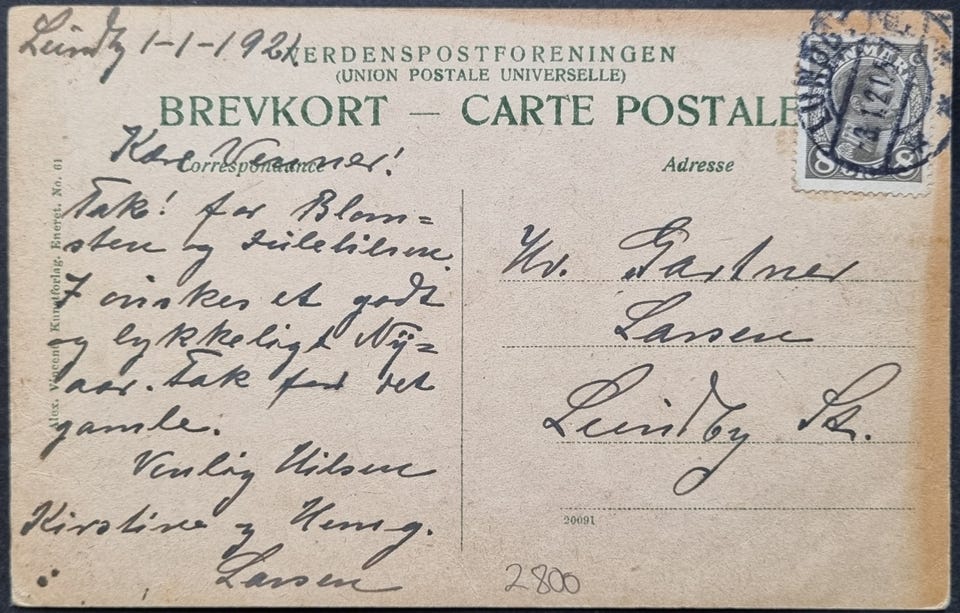 Lundby 1-1-1921
VERDENSPOSTFORENINGEN
(UNION POSTALE UNIVERSELLE)
BREVKORT — CARTE POSTALE
Correspondance
Adresse
Kære Venner!
Tak! for Blom=
sten og Julehilsen.
I ønskes et godt
og lykkeligt Ny=
aar. Tak for det
gamle.
Venlig Hilsen
Kirstine og Hemg.
Larsen
Hr. Gartner
Larsen
Lundby St.
20091
2800
Alex. Vincents Kunstforlag. Eneret. No. 61
LUNDBY
3.1.21
DANMARK
8 ØRE 8